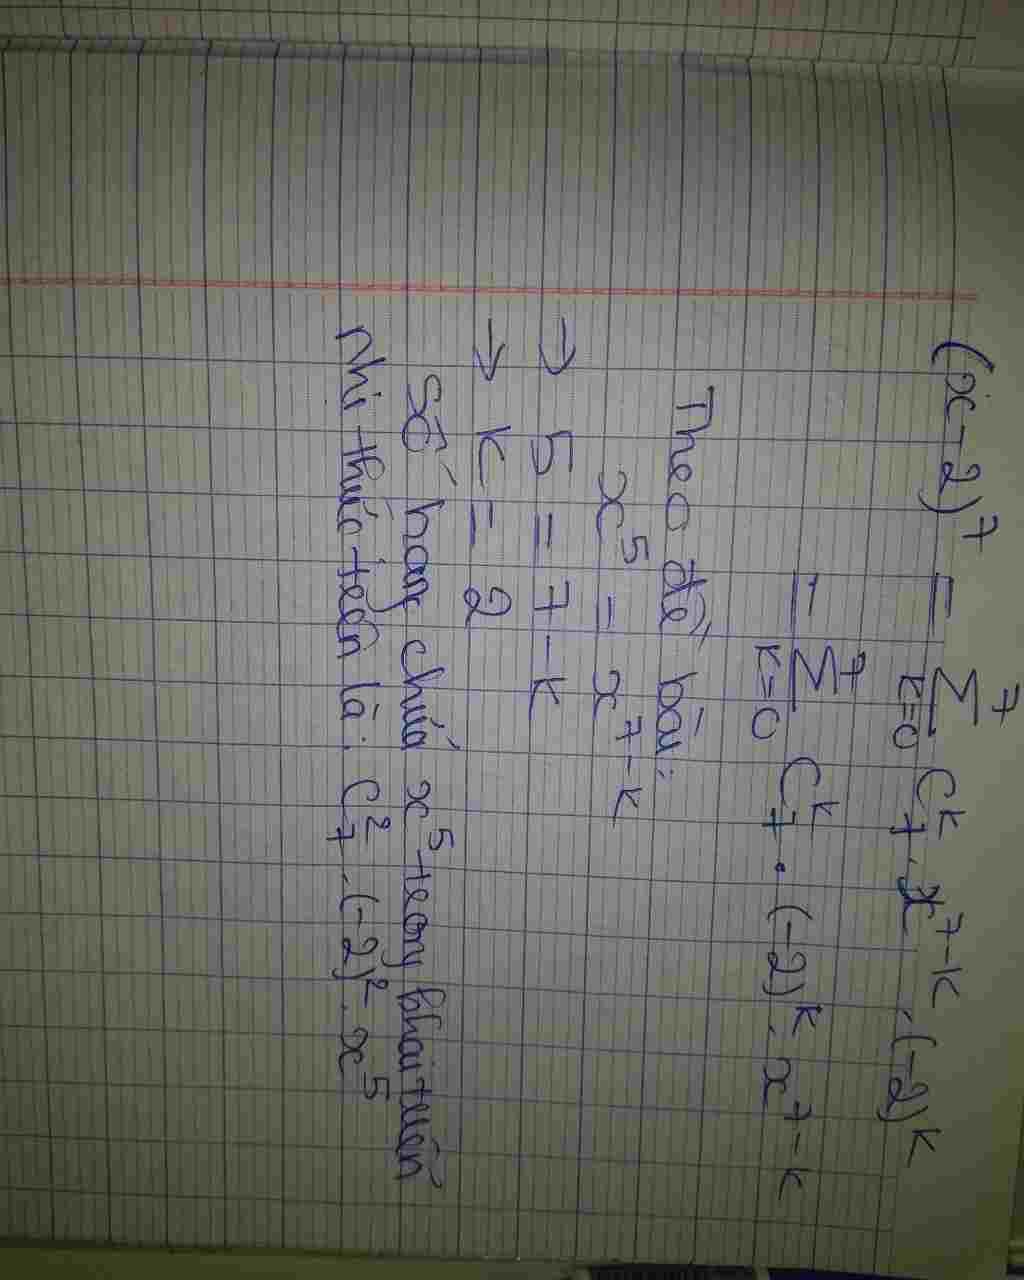 (x-2)⁷ = ∑_{k=0}^{7} C₇ᵏ . x^{7-k} . (-2)ᵏ
= ∑_{k=0}^{7} C₇ᵏ . (-2)ᵏ . x^{7-k}
Theo đề bài:
x⁵ = x^{7-k}
→ 5 = 7-k
→ k = 2
Số hạng chứa x⁵ trong khai triển
nhị thức trên là: C₇² . (-2)² . x⁵